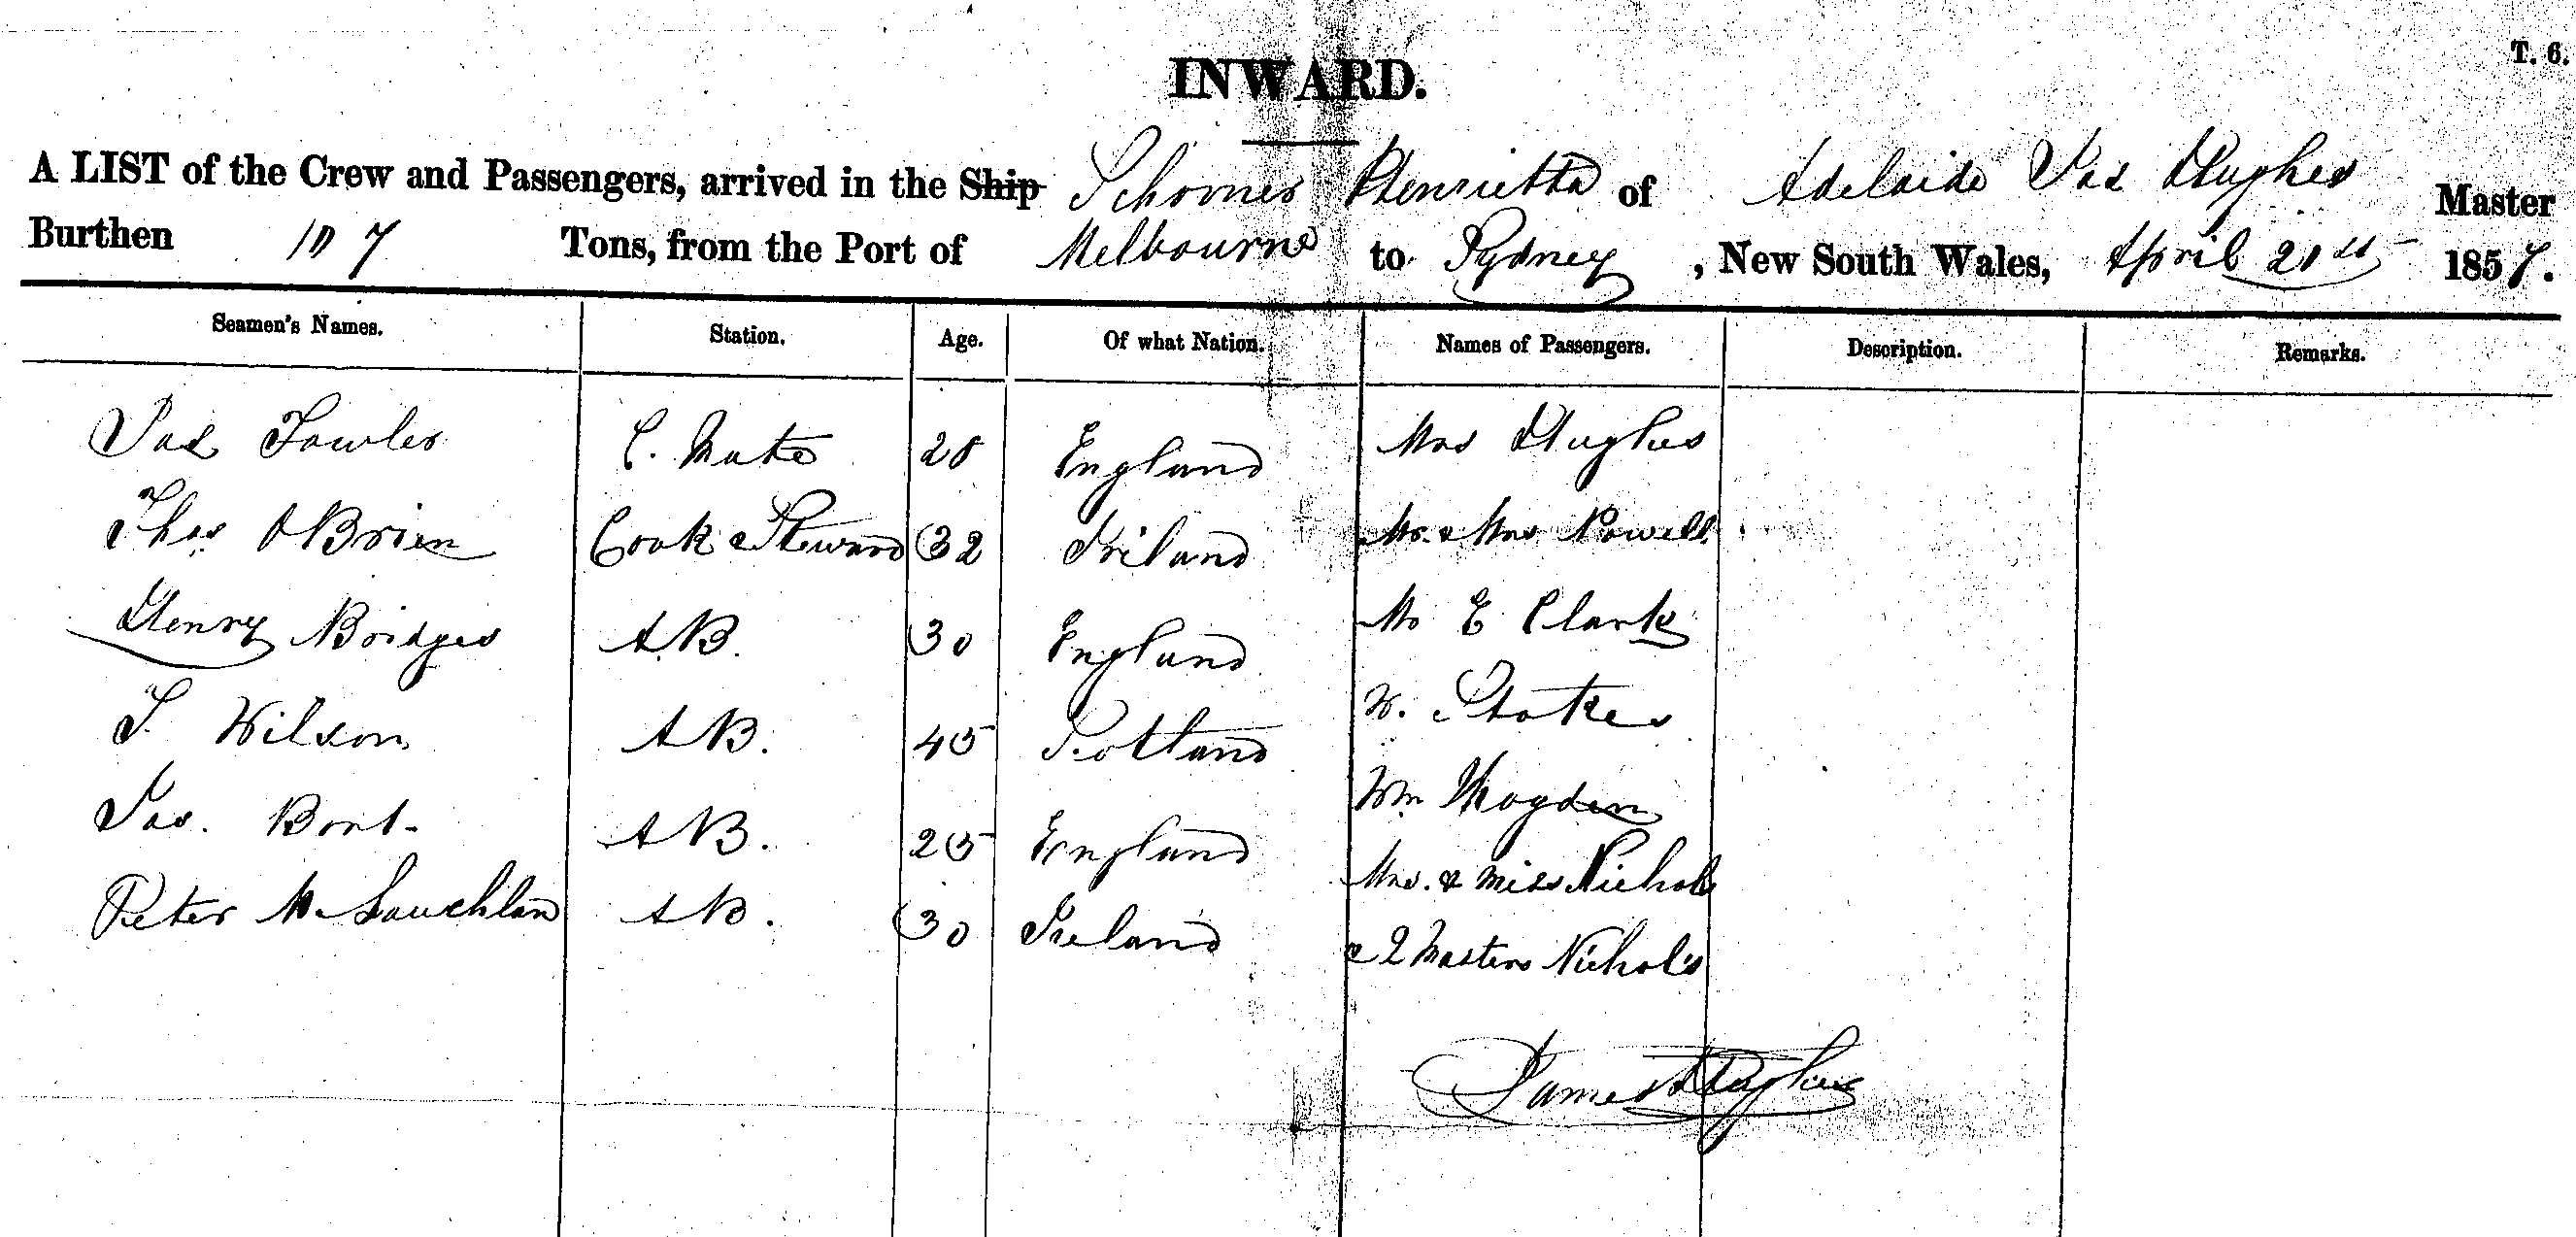 T. 6.
INWARD.
A LIST of the Crew and Passengers, arrived in the Ship Schooner Henrietta of Adelaide Jas Hughes Master
Burthen 107 Tons, from the Port of Melbourne to Sydney, New South Wales, April 21st 1857.
Seamen's Names. Station. Age. Of what Nation. Names of Passengers. Description. Remarks.
Jas Fowler C. Mate 28 England Mrs Hughes
Thos OBrien Cook & Steward 32 Iriland Mr. & Mrs Powell
Henry Bridges AB. 30 England Mr E Clark
T. Wilson AB. 45 Scotland W. Stokes
Jas. AB. 25 England Wm Hogden
Peter McLauchlan AB. 30 Ireland Mrs. & Miss Nichols
& 2 Masters Nichols
James Hughes